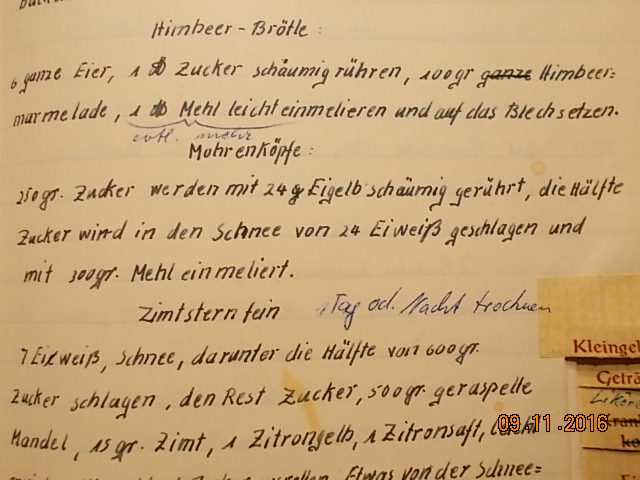 Himbeer-Brötle:
6 ganze Eier, 1 ℔ Zucker schäumig rühren, 100gr ganze Himbeer=
marmelade, 1 ℔ Mehl leicht einmelieren und auf das Blech setzen.
evtl. mehr
Mohrenköpfe:
250gr. Zucker werden mit 24 Eigelb schäumig gerührt, die Hälfte
Zucker wird in den Schnee von 24 Eiweiß geschlagen und
mit 300gr. Mehl einmeliert.
Zimtstern fein 1 Tag od. Nacht trocknen
7 Eiweiß, Schnee, darunter die Hälfte von 600gr.
Zucker schlagen, den Rest Zucker, 500gr. geraspelte
Mandel, 15gr. Zimt, 1 Zitrongelb, 1 Zitronsaft, leicht
Etwas von der Schnee=
Kleingeb
Geträ
Likör
Krank
ko
09.11.2016